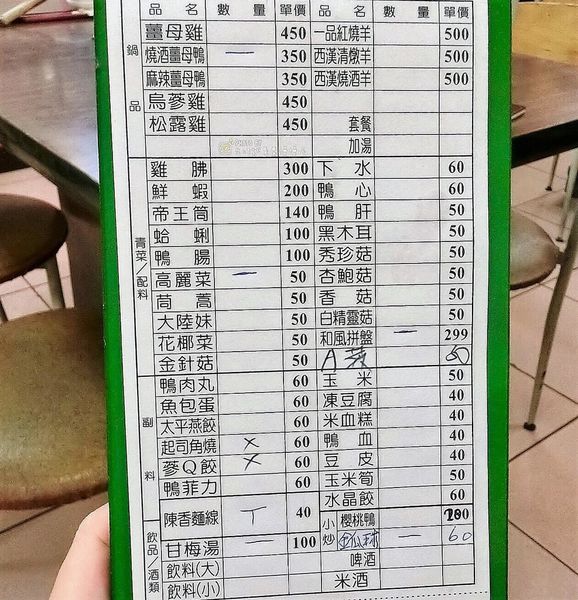 品名 數量 單價 品名 數量 單價
鍋品
薑母雞 450 一品紅燒羊 500
燒酒薑母鴨 一 350 西漢清燉羊 500
麻辣薑母鴨 350 西漢燒酒羊 500
烏蔘雞 450
松露雞 450 套餐
加湯
青菜/配料
雞胇 300 下水 60
鮮蝦 200 鴨心 60
帝王筒 140 鴨肝 50
蛤蜊 100 黑木耳 50
鴨腸 100 秀珍菇 50
高麗菜 一 50 杏鮑菇 50
茼蒿 50 香菇 50
大陸妹 50 白精靈菇 50
花椰菜 50 和風拼盤 一 299
金針菇 50 A菜 50
副料
鴨肉丸 60 玉米 50
魚包蛋 60 凍豆腐 40
太平燕餃 60 米血糕 40
起司角燒 × 60 鴨血 40
蔘Q餃 × 60 豆皮 40
鴨菲力 60 玉米筍 50
水晶餃 60
陳香麵線 丅 40 小炒 櫻桃鴨
飲品/酒類
甘梅湯 一 100 金瓜球 一 60
飲料(大) 啤酒
飲料(小) 米酒